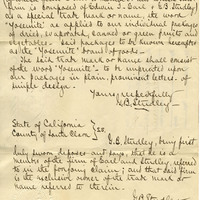 firm is composed of Edwin T. Earl & G.B. Studley
as a special trade mark or name, the word
"Yosemite" as applied to our individual packages
of dried, evaporated, canned or green fruits and
vegetables. Said packages to be known hereafter
as the "Yosemite" brand of goods.
The said trade mark or name shall consist
of the word "Yosemite" - to be imprinted upon
our packages in plain, prominent letters, of
simple design.
Yours respectfully
G.B. Studley
State of California
County of Santa Clara } SS.
G.B. Studley, being first
duly sworn, deposes and says, that he is a
member of the firm of Earl and Studley, referred
to in the foregoing claim; and that said firm
is the exclusive owner of the trade mark or
name referred to therein.
G.B. Studley